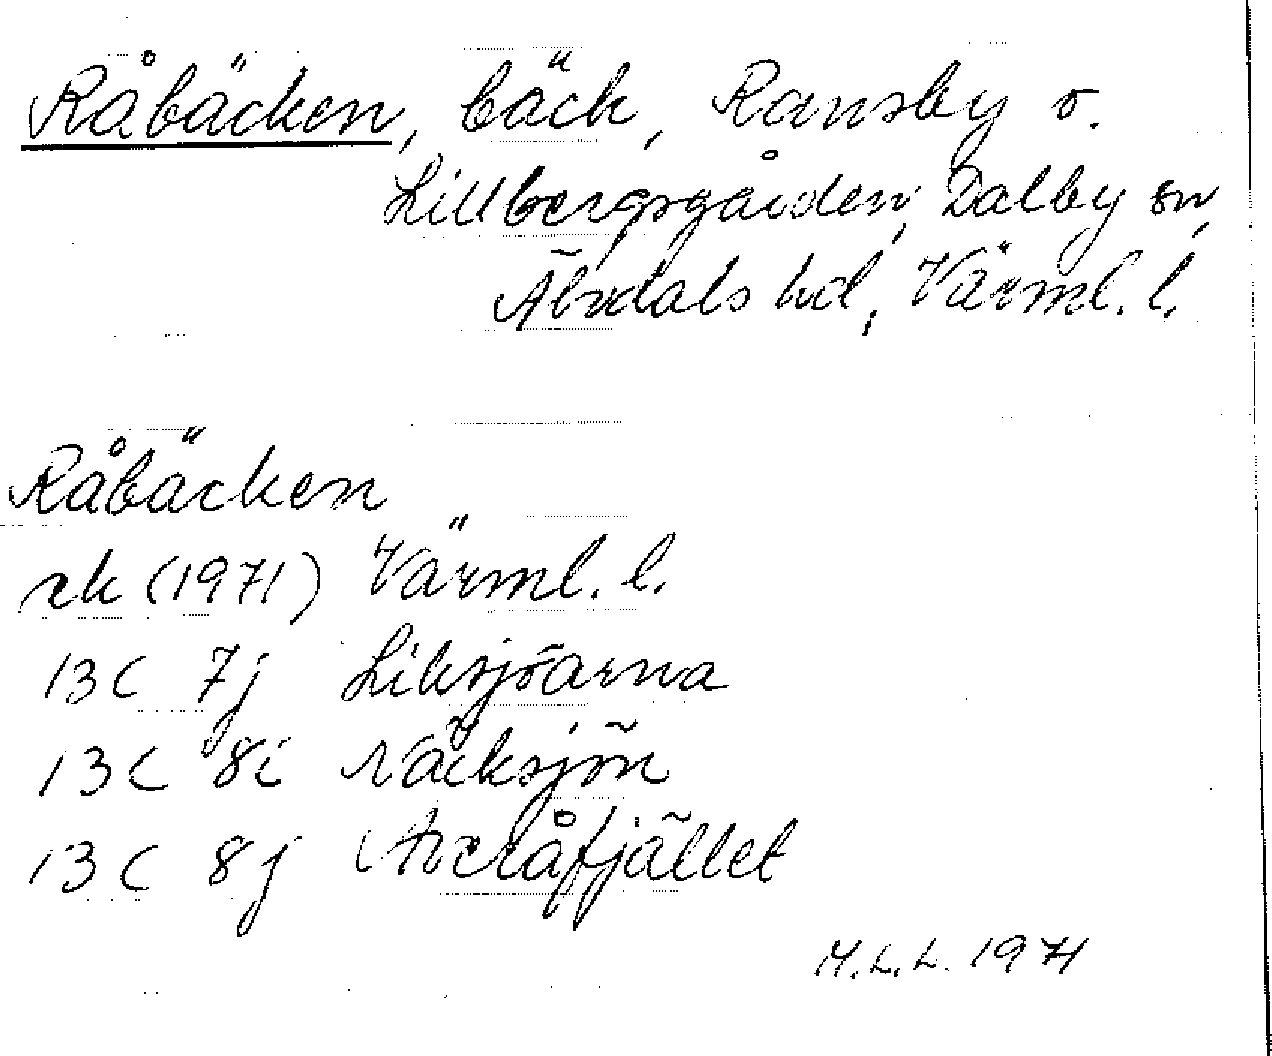 Råbäcken, bäck, Ransby o.
Lillbergsgården, Dalby sn,
Älvdals hd, Värml. l.
Råbäcken
rk (1971) Värml. l.
13C 7j Liksjöarna
13C 8i Näcksjön
13C 8j Avelåfjället
M.L.L. 1971